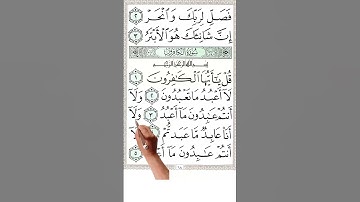 فَصَلِّ لِرَبِّكَ وَٱنْحَرْ ٢
إِنَّ شَانِئَكَ هُوَ ٱلْأَبْتَرُ ٣
سُورَةُ الكَافِرُونَ
بِسْمِ ٱللَّهِ ٱلرَّحْمَٰنِ ٱلرَّحِيمِ
قُلْ يَٰٓأَيُّهَا ٱلْكَٰفِرُونَ ١
لَآ أَعْبُدُ مَا تَعْبُدُونَ ٢ وَلَآ
أَنتُمْ عَٰبِدُونَ مَآ أَعْبُدُ ٣ وَلَآ
أَنَا۠ عَابِدٌ مَّا عَبَدتُّمْ ٤ وَلَآ
أَنتُمْ عَٰبِدُونَ مَآ أَعْبُدُ ٥